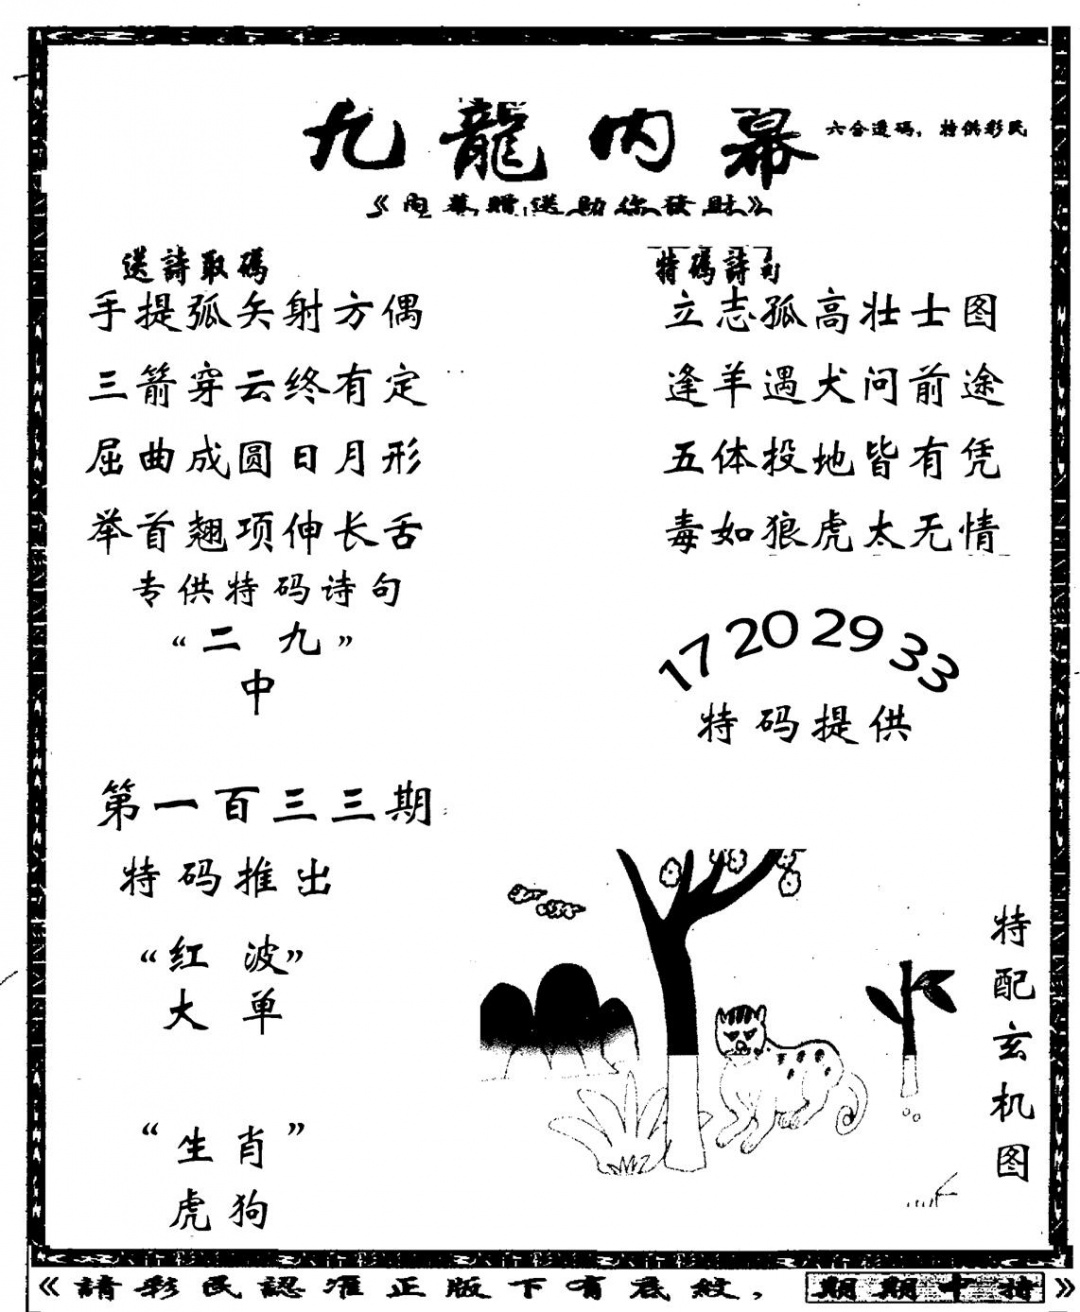 九龍内幕
六合透码，特供彩民
《内幕赠送助你發財》
送詩取碼
手提弧矢射方偶
三箭穿云终有定
屈曲成圆日月形
举首翘项伸长舌
专供特码诗句
“二九”
中
第一百三三期
特码推出
“红波”
大单
“生肖”
虎狗
特碼詩句
立志孤高壮士图
逢羊遇犬问前途
五体投地皆有凭
毒如狼虎太无情
17 20 29 33
特码提供
特配玄机图
《請彩民認准正版下有底紋，期期中特》